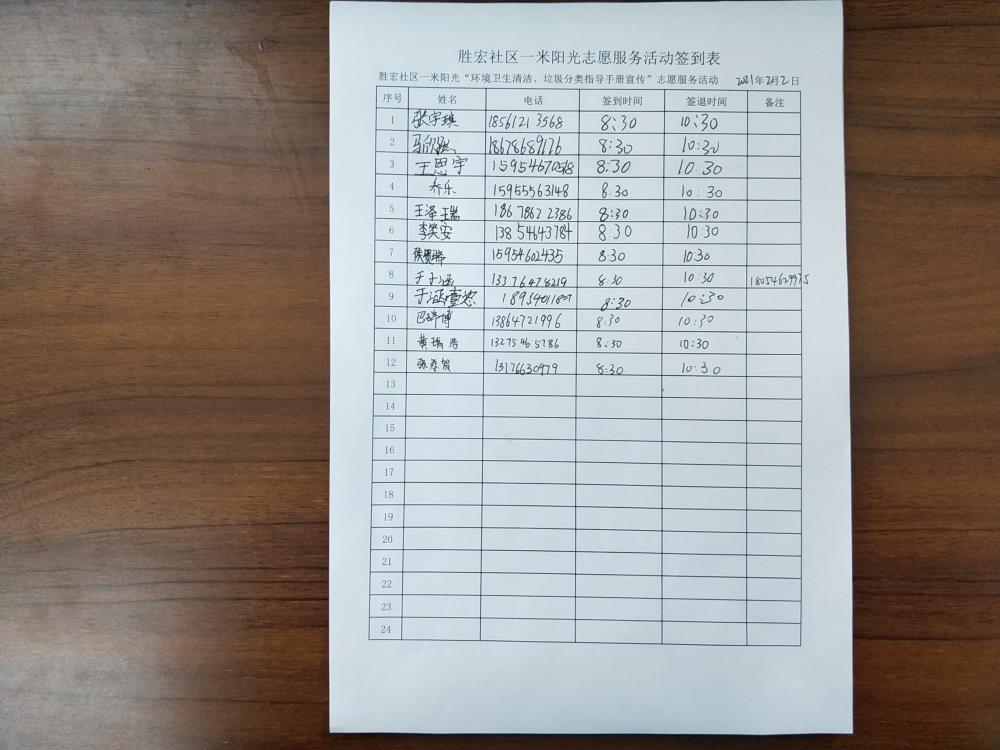 胜宏社区一米阳光志愿服务活动签到表
胜宏社区一米阳光“环境卫生清洁、垃圾分类指导手册宣传”志愿服务活动 2021年2月2日
序号 姓名 电话 签到时间 签退时间 备注
1 张宇琪 18561213568 8:30 10:30
2 马欣 18678689176 8:30 10:30
3 王恩宇 15954670518 8:30 10:30
4 乔乐 15955563148 8:30 10:30
5 王泽瑞 18678622386 8:30 10:30
6 李笑安 13854643784 8:30 10:30
7 15954602435 8:30 10:30
8 于子涵 13376478219 8:30 10:30
9 于涵 8:30 10:30
10 巴 博 13864721996 8:30 10:30
11 黄瑞浩 13275465786 8:30 10:30
12 张 13176630979 8:30 10:30
13
14
15
16
17
18
19
20
21
22
23
24